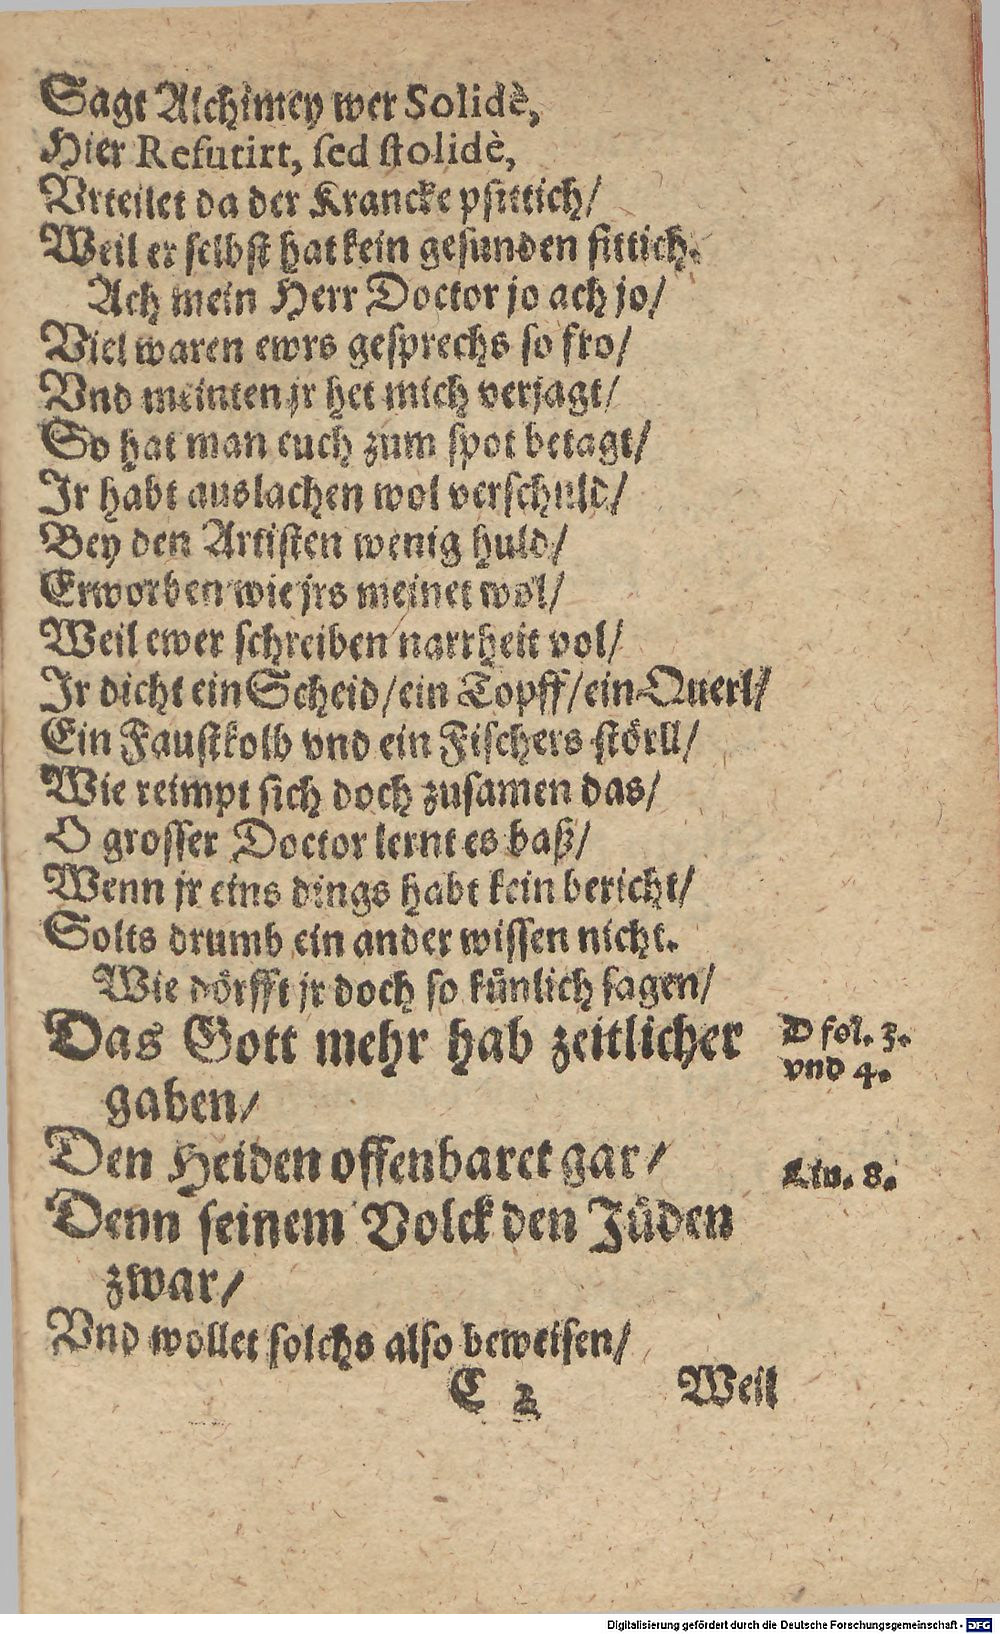 Sagt Alchimey wer Solidè,
Hier Refutirt, sed stolidè,
Vrteilet da der Krancke psittich/
Weil er selbst hat kein gesunden fittich.
Ach mein Herr Doctor jo ach jo/
Viel waren ewrs gesprechs so fro/
Vnd meinten jr het mich verjagt/
So hat man euch zum spot betagt/
Jr habt auslachen wol verschuld/
Bey den Artisten wenig huld/
Erworben wie jrs meinet wol/
Weil ewer schreiben narrheit vol/
Jr dicht ein Scheid/ein Topff/ein Querl/
Ein Faustkolb vnd ein Fischers störll/
Wie reimpt sich doch zusamen das/
O grosser Doctor lernt es baß/
Wenn jr eins dings habt kein bericht/
Solts drumb ein ander wissen nicht.
Wie dörfft jr doch so künlich sagen/
Das Gott mehr hab zeitlicher
gaben/
D fol. 3.
vnd 4.
Den Heiden offenbaret gar/
Lin. 8.
Denn seinem Volck den Jüden
zwar/
Vnd wollet solchs also beweisen/
C 2 Weil
Digitalisierung gefördert durch die Deutsche Forschungsgemeinschaft - DFG